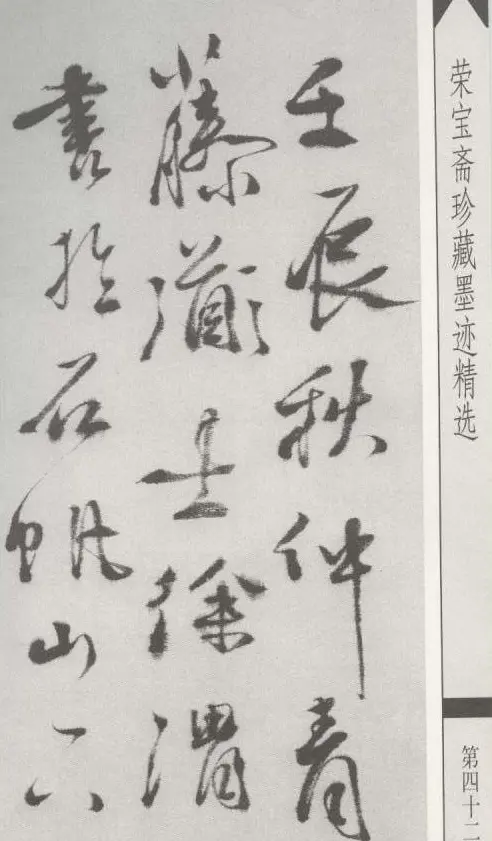 荣宝斋珍藏墨迹精选
第四十二
壬辰秋仲青
藤衜士徐渭
書於石帆山下